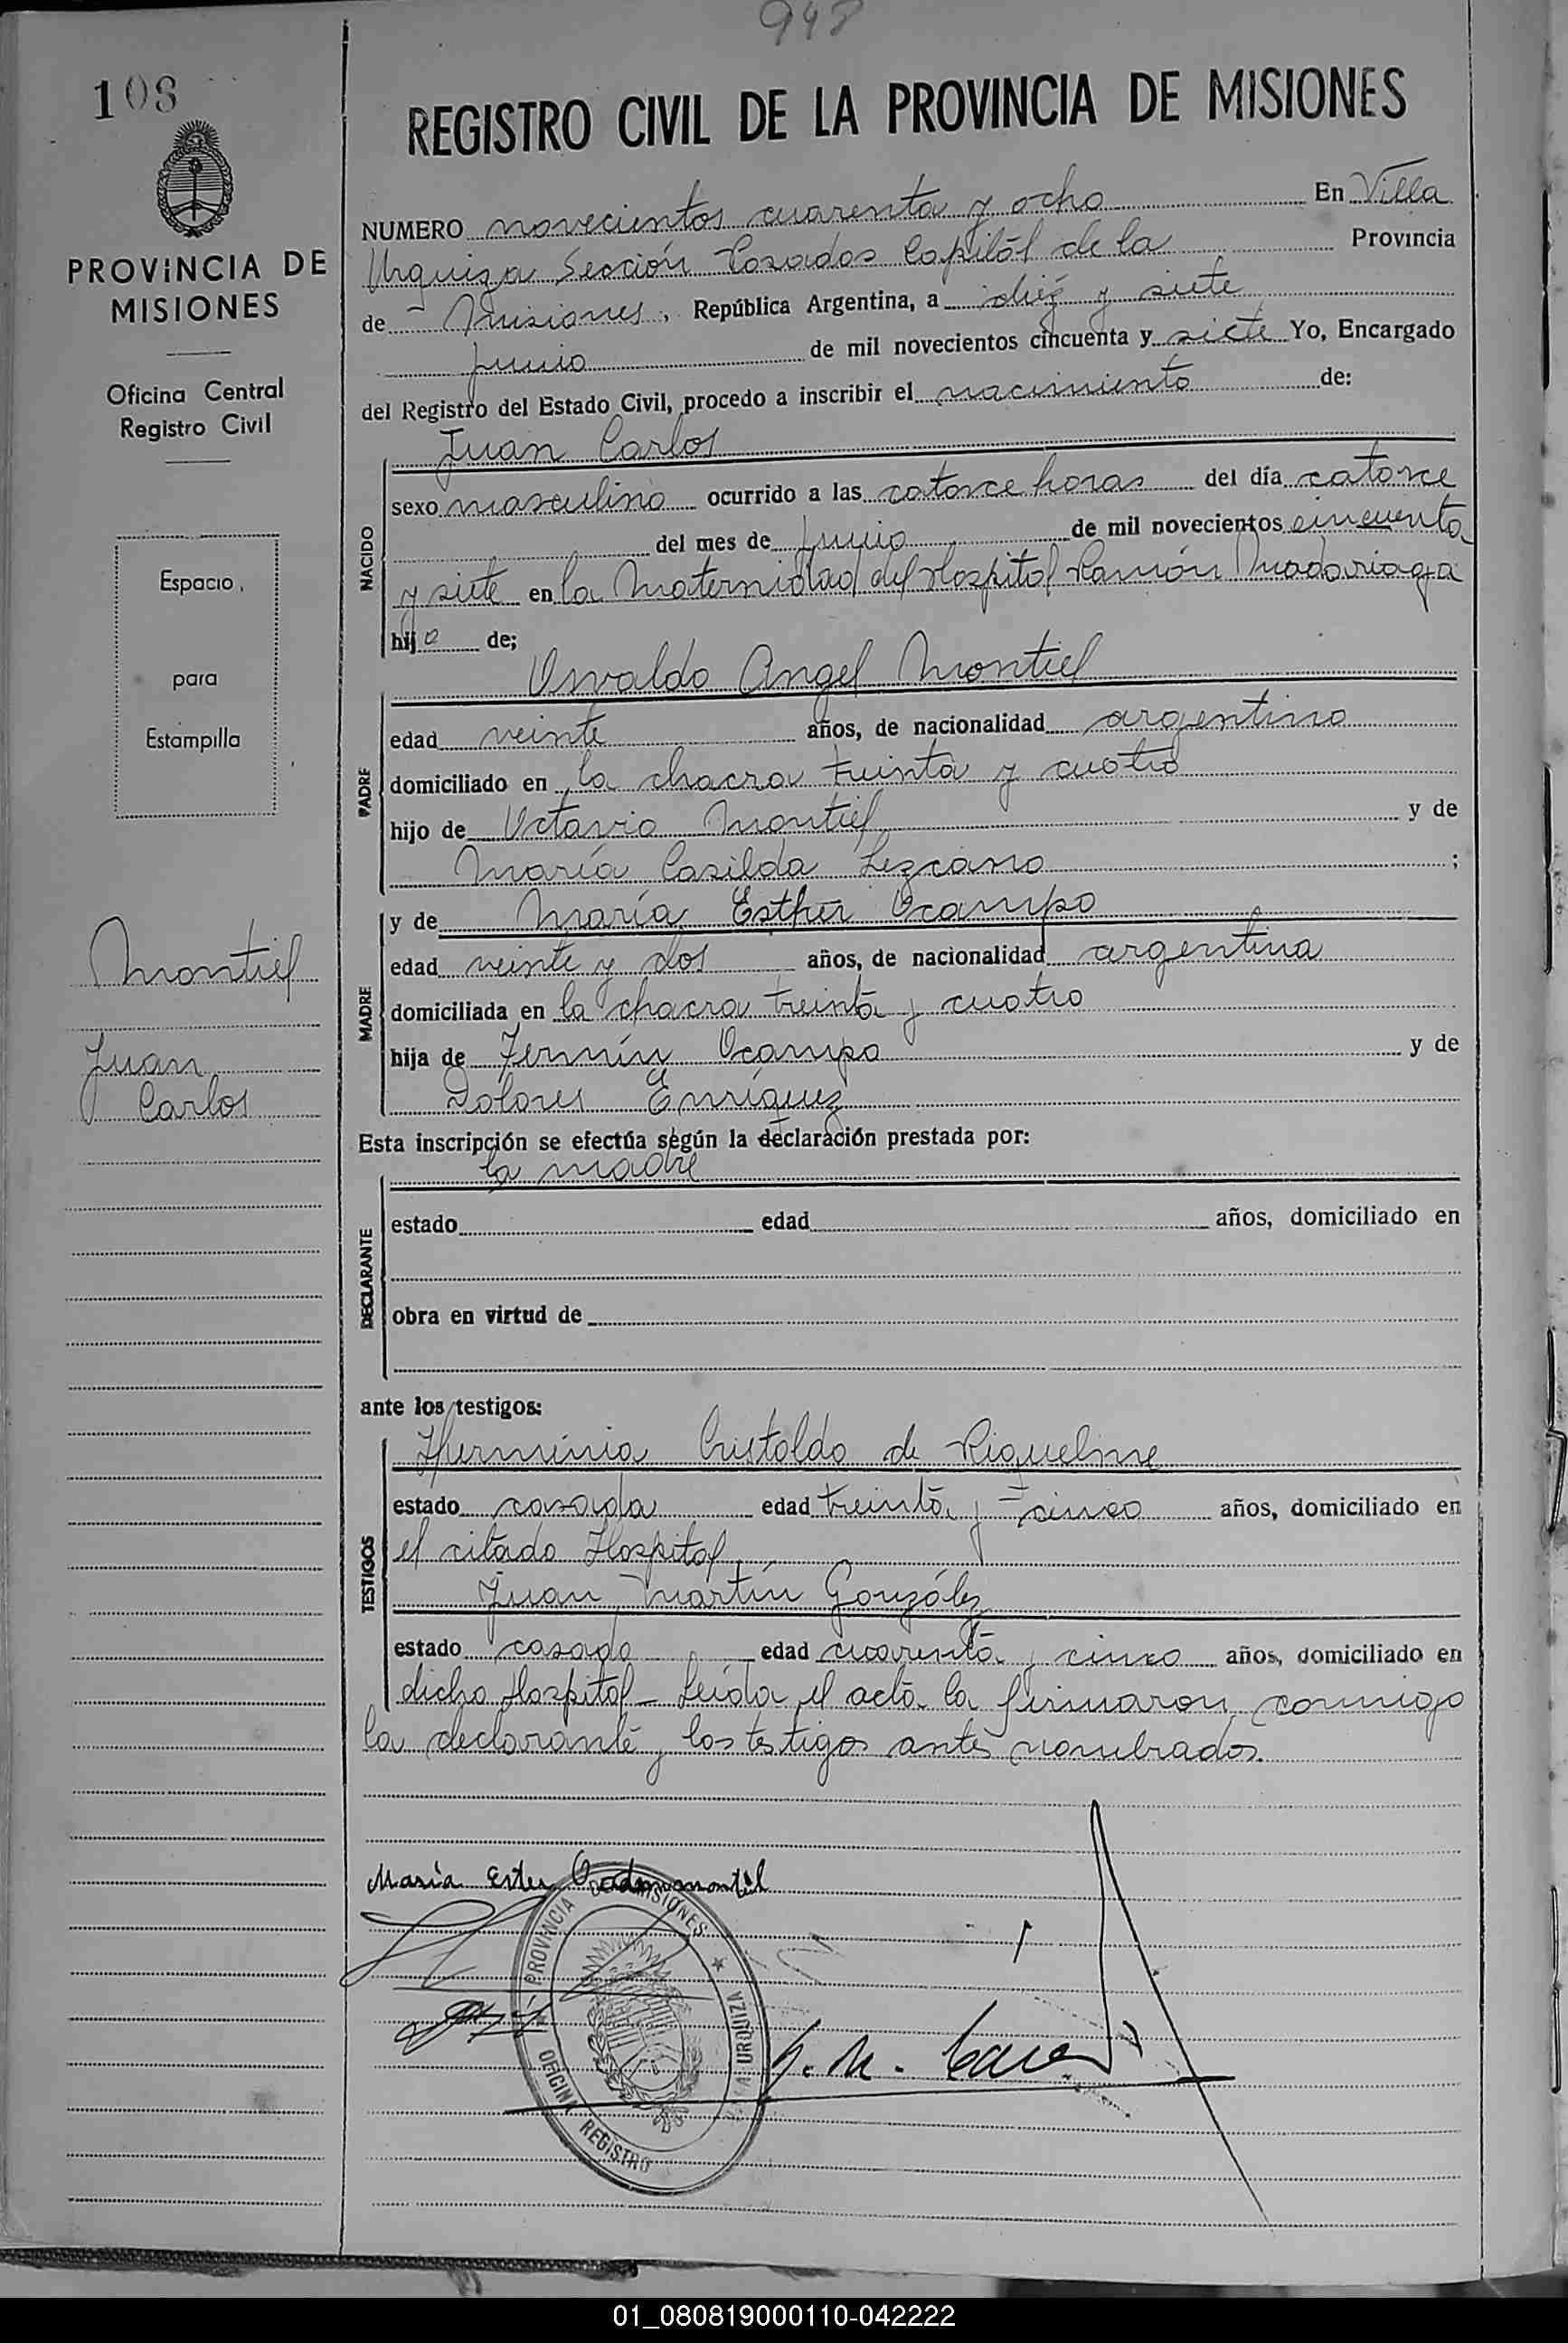 948
108
REGISTRO CIVIL DE LA PROVINCIA DE MISIONES
PROVINCIA DE
MISIONES
Oficina Central
Registro Civil
Espacio
para
Estampilla
Montiel
Juan
Carlos
NUMERO novecientos cuarenta y ocho En Villa
Urquiza Sección Posadas Capital de la Provincia
de Misiones, República Argentina, a diez y siete
junio de mil novecientos cincuenta y siete Yo, Encargado
del Registro del Estado Civil, procedo a inscribir el nacimiento de:
Juan Carlos
NACIDO
sexo masculino ocurrido a las catorce horas del día catorce
del mes de junio de mil novecientos cincuenta
y siete en la Maternidad del Hospital Ramón Madariaga
hijo de;
Osvaldo Angel Montiel
PADRE
edad veinte años, de nacionalidad argentino
domiciliado en la chacra treinta y cuatro
hijo de Octavio Montiel y de
María Casilda Lezcano ;
y de María Esther Ocampo
MADRE
edad veinte y dos años, de nacionalidad argentina
domiciliada en la chacra treinta y cuatro
hija de Fermín Ocampo y de
Dolores Enríquez
Esta inscripción se efectúa según la declaración prestada por:
la madre
DECLARANTE
estado edad años, domiciliado en
obra en virtud de
ante los testigos:
Herminia Cristaldo de Riquelme
TESTIGOS
estado casada edad treinta y cinco años, domiciliado en
el citado Hospital
Juan Martín González
estado casado edad cuarenta y cinco años, domiciliado en
dicho Hospital - Leída el acta la firmaron conmigo
la declarante y los testigos antes nombrados.
María Ester Montiel
PROVINCIA DE MISIONES
OFICINA REGISTRO
VILLA URQUIZA
01_080819000110-042222